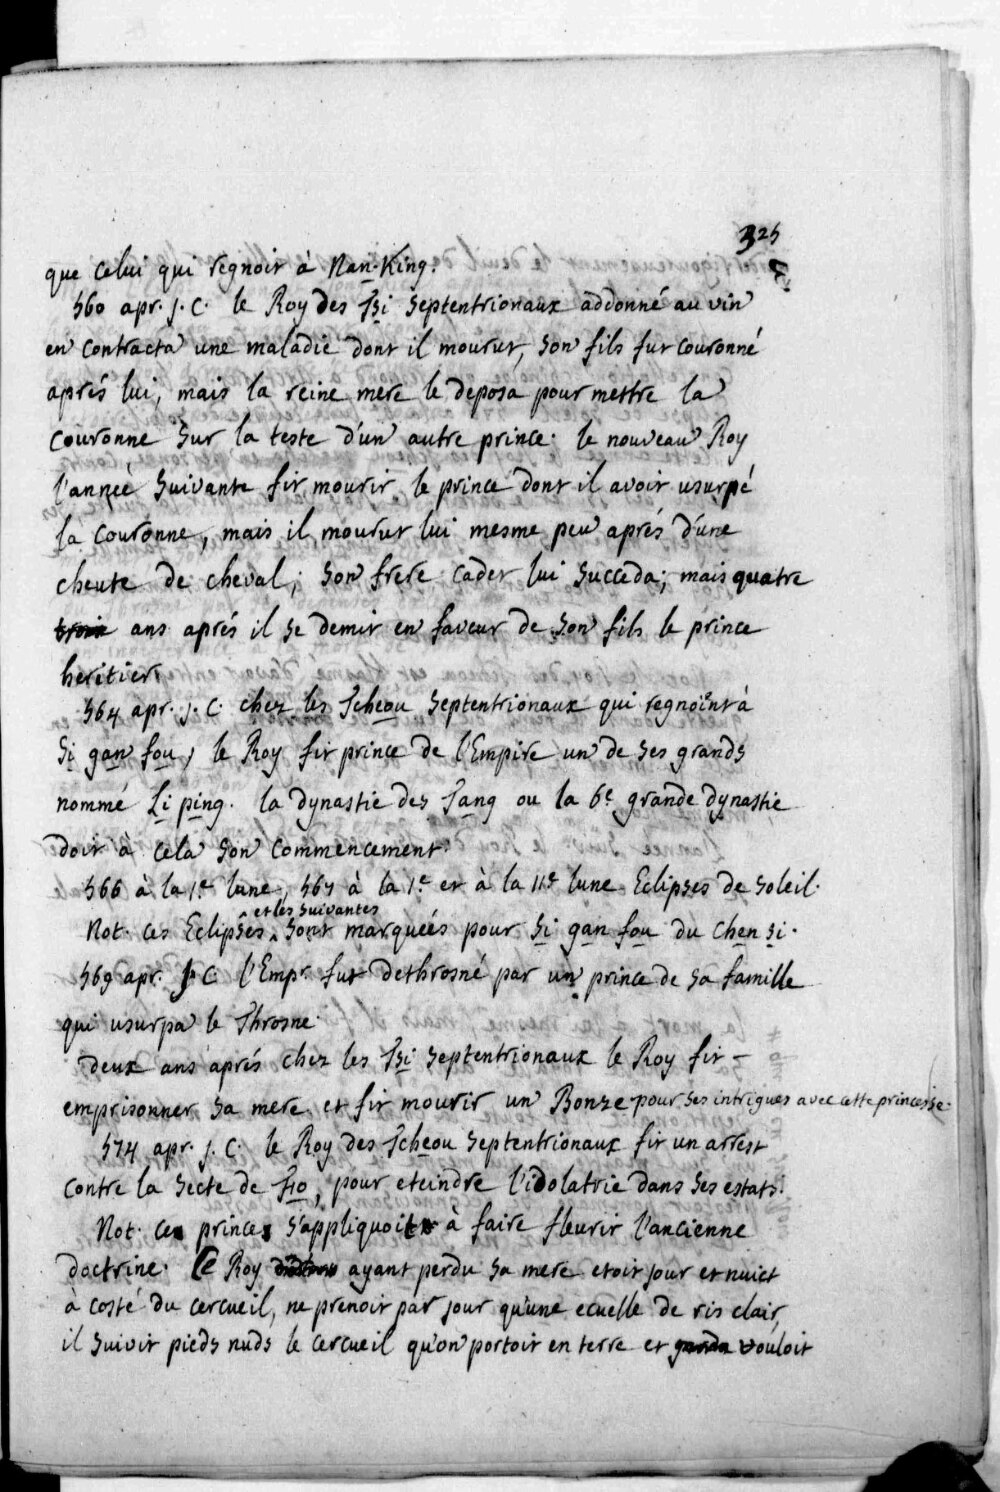 325
que celui qui regnoit à Nan-King.
560 apr. J. C. le Roy des Tsi septentrionaux addonné au vin
en contracta une maladie dont il mourut, son fils fut couronné
aprés lui, mais la reine mere le deposa pour mettre la
couronne sur la teste d'un autre prince. le nouveau Roy
l'année suivante fit mourir le prince dont il avoit usurpé
la couronne, mais il mourut lui mesme peu aprés d'une
cheute de cheval; son frere cadet lui succeda; mais quatre
trois ans aprés il se demit en faveur de son fils le prince
heritier.
564 apr. J. C. chez les Tcheou septentrionaux qui regnoint à
Si gan fou, le Roy fit prince de l'Empire un de ses grands
nommé Li ping. la dynastie des Tang ou la 6e grande dynastie
doit à cela son commencement.
566 à la 1.e lune, 567 à la 1.e et à la 11e lune Eclipses de soleil.
et les suivantes
Not. ces Eclipses sont marquées pour Si gan fou du Chen si.
569 apr. J. C. l'Empr. fut dethrosné par un prince de sa famille
qui usurpa le Throsne.
deux ans aprés chez les Tsi septentrionaux le Roy fit
emprisonner sa mere et fit mourir un Bonze pour ses intrigues avec cette princesse.
574 apr. J. C. le Roy des Tcheou septentrionaux fit un arrest
contre la secte de Fo, pour eteindre l'idolatrie dans ses estats.
Not. ce prince s'appliquoit à faire fleurir l'ancienne
doctrine. Ce Roy ayant perdu sa mere etoit jour et nuict
à costé du cercueil, ne prenoit par jour qu'une ecuelle de ris clair,
il suivit pieds nuds le cercueil qu'on portoit en terre et vouloit